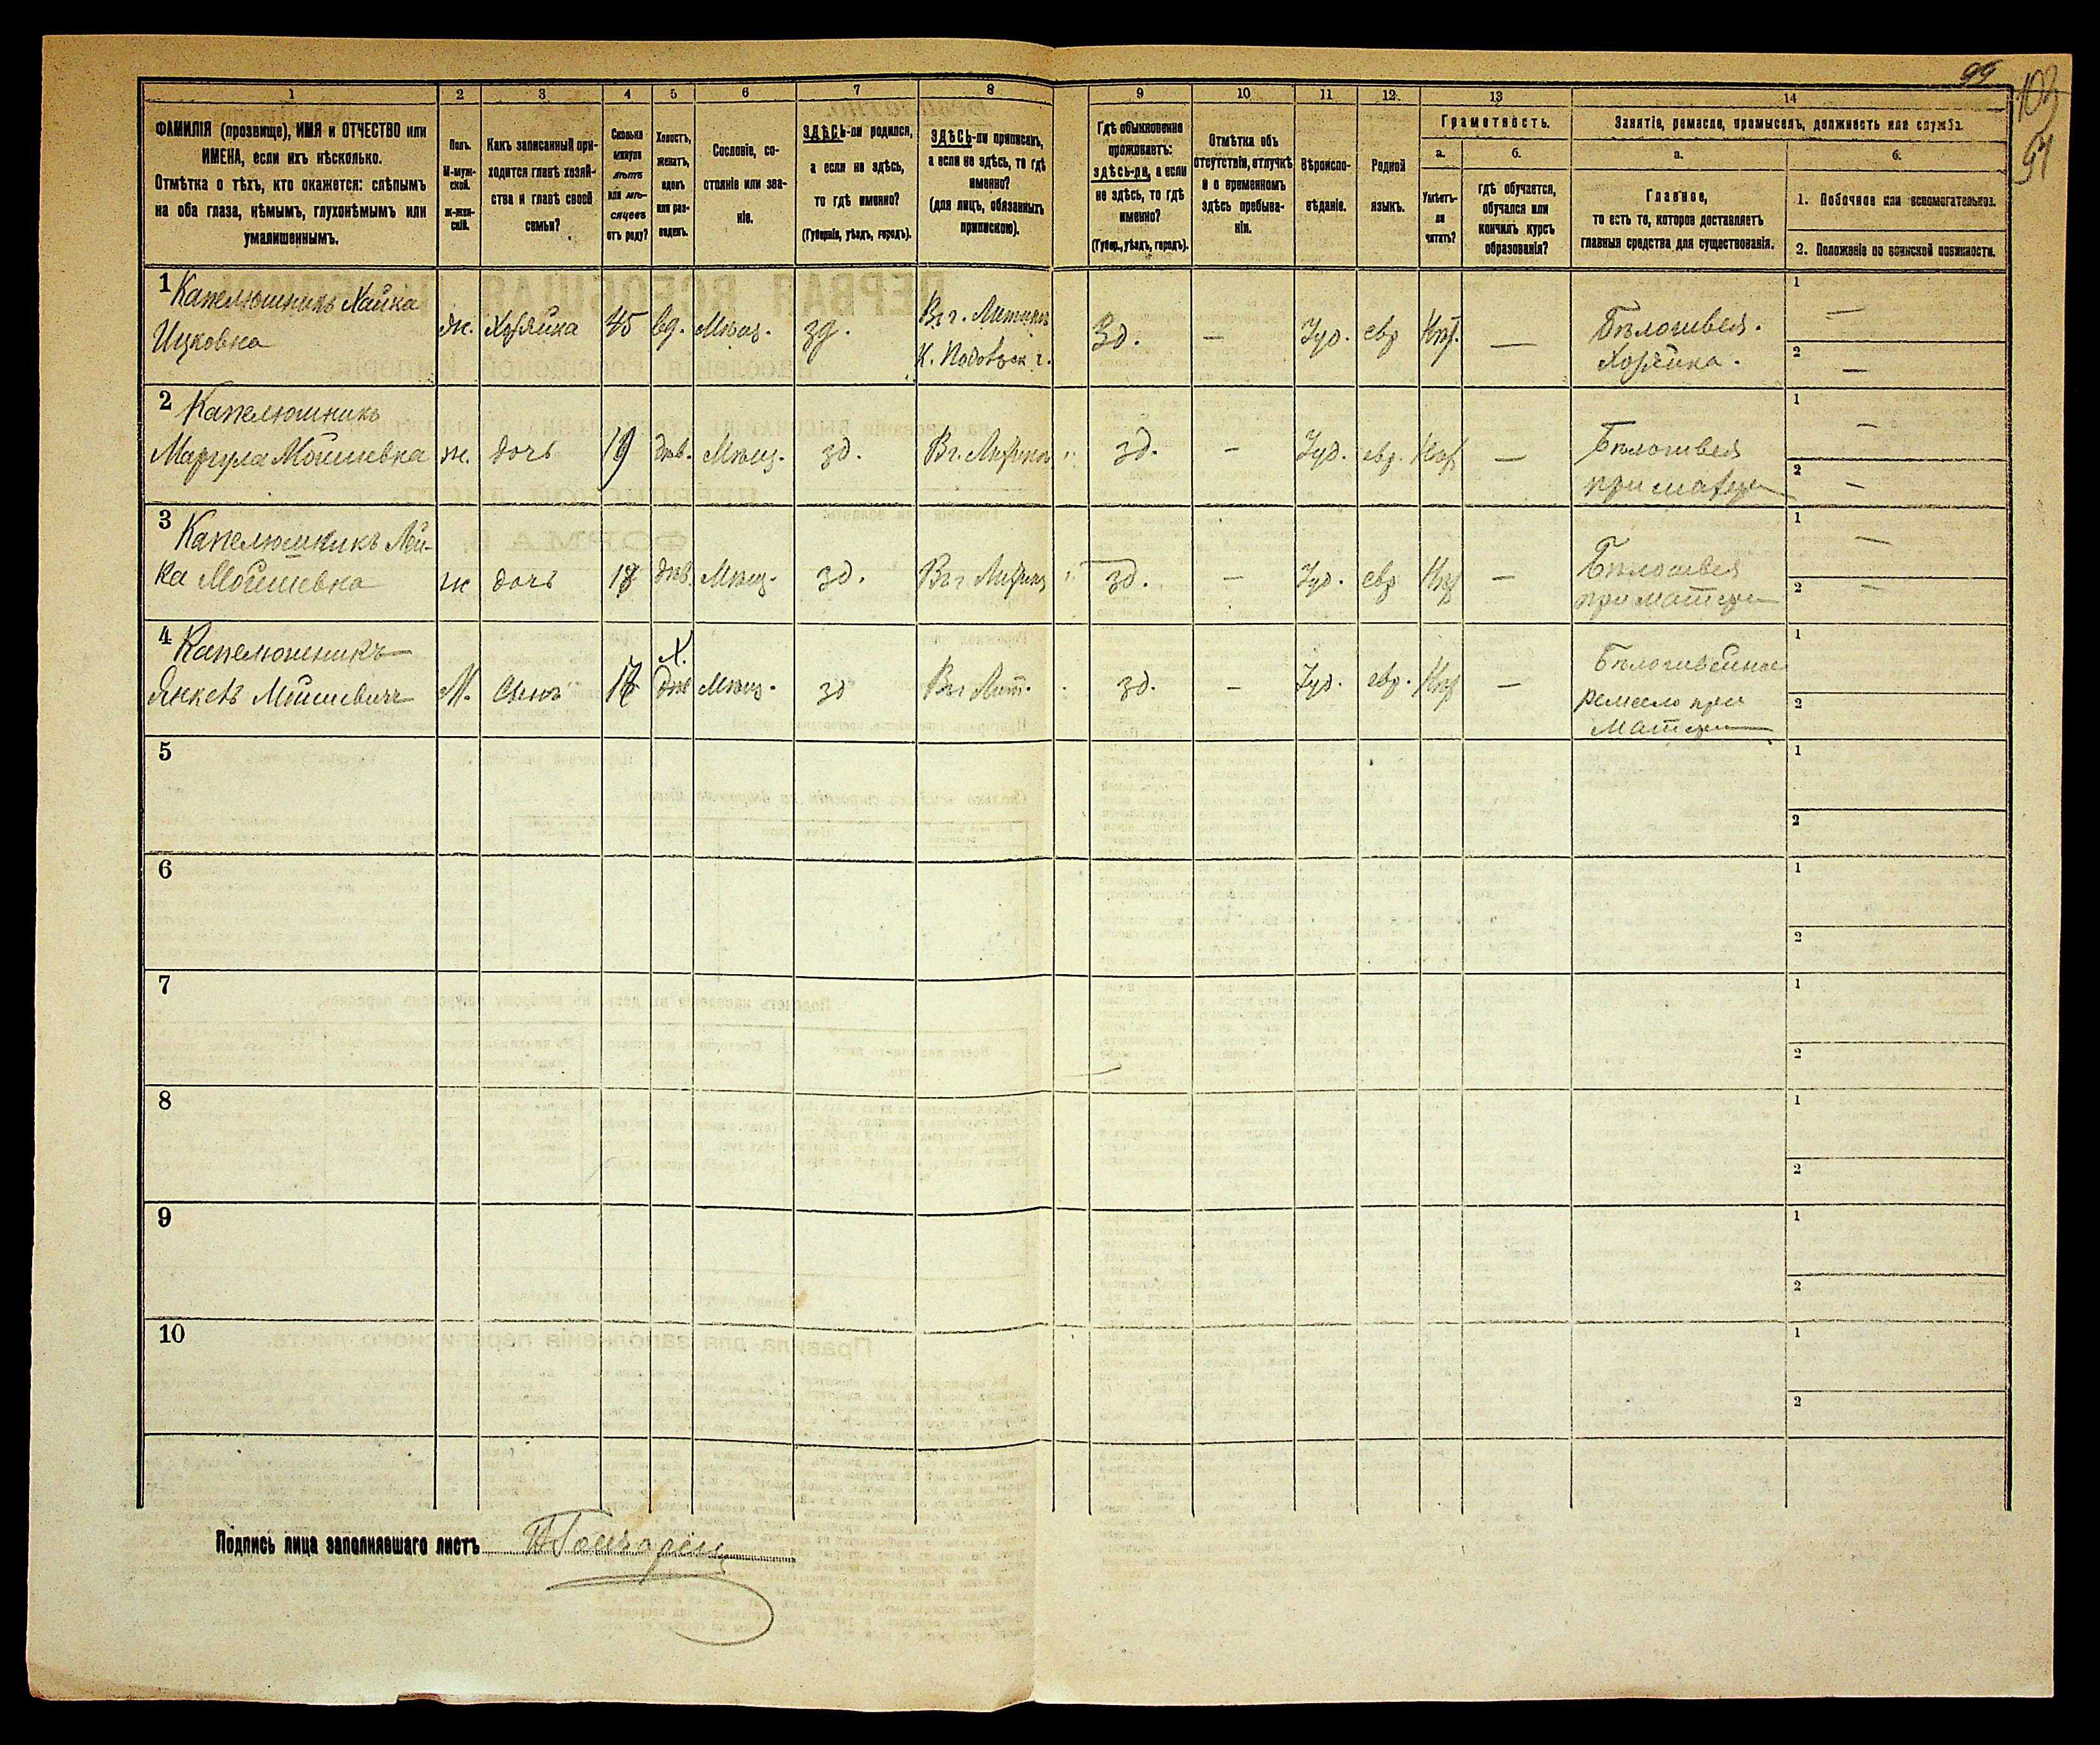 99
103
91
1
2
3
4
5
6
7
8
9
10
11
12
13
14
ФАМИЛІЯ (прозвище), ИМЯ и ОТЧЕСТВО или
ИМЕНА, если ихъ нѣсколько.
Отмѣтка о тѣхъ, кто окажется: слѣпымъ
на оба глаза, нѣмымъ, глухонѣмымъ или
умалишеннымъ.
Полъ.
М-муж-
ской.
Ж-жен-
скій.
Какъ записанный при-
ходится главѣ хозяй-
ства и главѣ своей
семьи?
Сколько
минуло
лѣтъ
или мѣ-
сяцевъ
отъ роду?
Холостъ,
женатъ,
вдовъ
или раз-
веденъ.
Сословіе, со-
стояніе или зва-
ніе.
ЗДѢСЬ-ли родился,
а если не здѣсь,
то гдѣ именно?
(Губернія, уѣздъ, городъ).
ЗДѢСЬ-ли приписанъ,
а если не здѣсь, то гдѣ
именно?
(для лицъ, обязанныхъ
припискою).
Гдѣ обыкновенно
проживаетъ:
здѣсь-ли, а если
не здѣсь, то гдѣ
именно?
(Губер., уѣздъ, городъ).
Отмѣтка объ
отсутствіи, отлучкѣ
и о временномъ
здѣсь пребыва-
ніи.
Вѣроиспо-
вѣданіе.
Родной
языкъ.
Грамотность.
а.
Умѣетъ-
ли
читать?
б.
гдѣ обучается,
обучался или
кончилъ курсъ
образованія?
Занятіе, ремесло, промыселъ, должность или служба.
а.
Главное,
то есть то, которое доставляетъ
главныя средства для существованія.
б.
1. Побочное или вспомогательное.
2. Положеніе по воинской повинности.
1 Капелюшникъ Хайка
Ицковна
ж. Хозяйка 45 вд. Мѣщ. зд.
Вг г. Литинѣ
К. Подольск г.
Зд. — Іуд. евр Нѣт. —
Бѣлошвея.
Хозяйка.
1 —
2 —
2 Капелюшникъ
Маргула Мойшевна ж. дочь 19 дѣв. Мѣщ. зд. Вг. Литинѣ " зд. — Іуд. евр. Нѣт —
Бѣлошвея
при матери
1 —
2 —
3 Капелюшникъ Лей-
ка Мойшевна ж дочь 18 дѣв. Мѣщ. зд. Вг г Литинѣ " зд. — Іуд. евр Нѣт —
Бѣлошвея
при матери
1 —
2 —
4 Капелюшникъ
Янкель Мойшевичъ М. Сынъ 17 Х. Мѣщ. зд Вг г Лит. зд. — Іуд. евр. Нѣт —
Бѣлошвейное
ремесло при
матери
1
2
5
1
2
6
1
2
7
1
2
8
1
2
9
1
2
10
1
2
Подпись лица заполнявшаго листъ